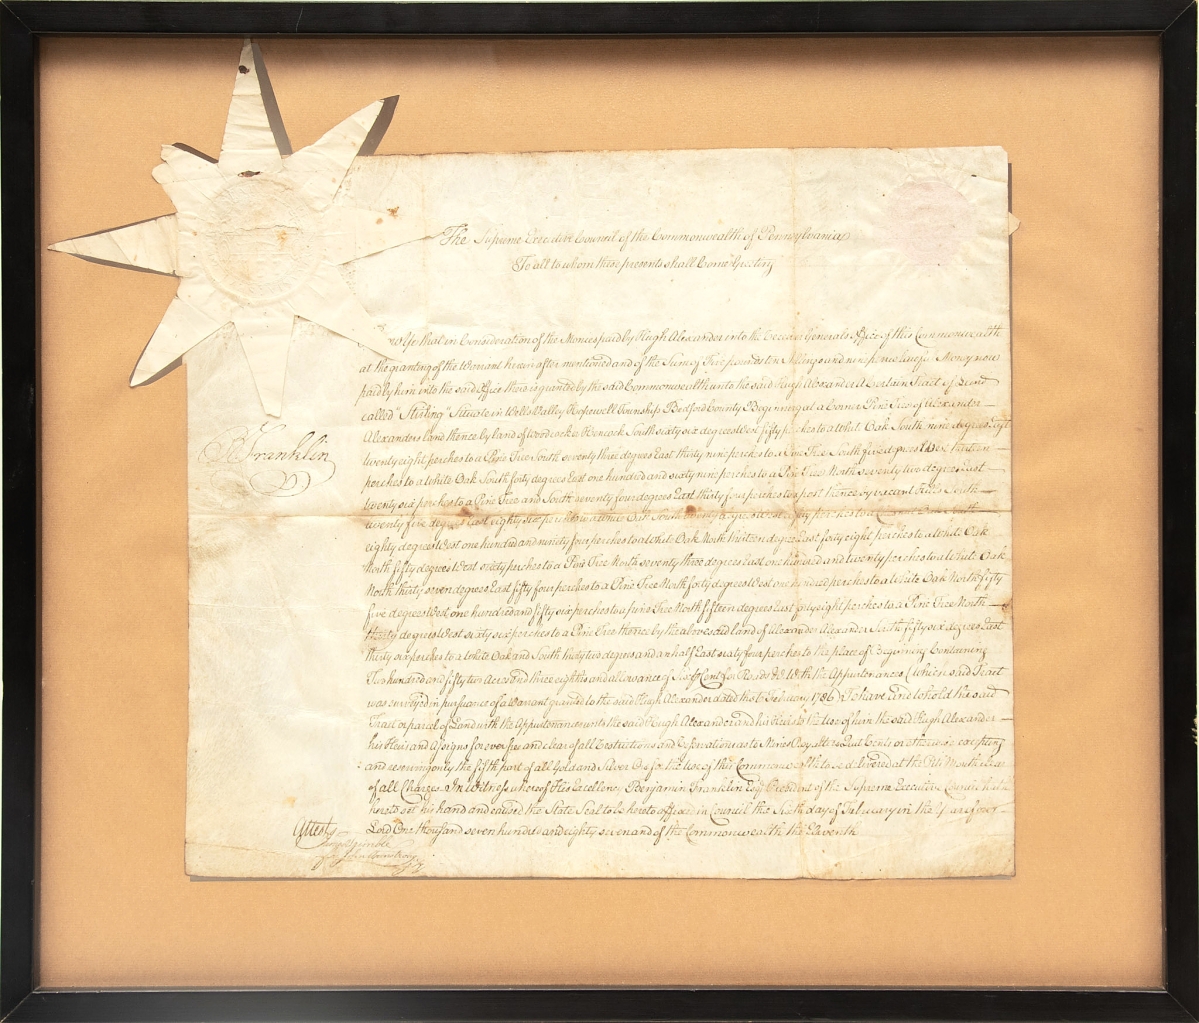 The Supreme Executive Council of the Commonwealth of Pennsylvania
To all to whom these presents shall Come Greeting
Know Ye that in Consideration of the Monies paid by Hugh Alexander into the Receiver Generals Office of this Commonwealth
at the granting of the Warrant herein after mentioned and of the Sum of Five pounds ten Shillings and nine pence lawful Money now
paid by him into the said Office there is granted by the said Commonwealth unto the said Hugh Alexander A Certain Tract of Land
called "Stirling" Situate in Wells Valley Hopewell Township Bedford County Beginning at a Corner Pine Tree of Alexander
Alexanders land thence by land of Woodcock & Hencock South sixty six degrees West fifty perches to a White Oak South nine degrees East
twenty eight perches to a Pine Tree South seventy three degrees East thirty nine perches to a Pine Tree South five degrees West thirteen
perches to a White Oak South forty degrees East one hundred and sixty nine perches to a Pine Tree North seventy two degrees East
twenty six perches to a Pine Tree and South seventy four degrees East thirty four perches to a post thence by vacant Hills South
twenty five degrees East eighty six perches to a White Oak South twenty degrees West eighty perches to a Oak South
eighty degrees West one hundred and ninety four perches to a White Oak North thirteen degrees East forty eight perches to a White Oak
North fifty degrees West sixty perches to a Pine Tree North seventy three degrees East one hundred and twenty perches to a White Oak
North thirty seven degrees East fifty four perches to a Pine Tree North forty degrees West one hundred perches to a White Oak North fifty
five degrees West one hundred and fifty six perches to a Pine Tree North fifteen degrees East forty eight perches to a Pine Tree North
thirty degrees West sixty six perches to a Pine Tree thence by the abovesaid land of Alexander Alexander South fifty six degrees East
thirty six perches to a White Oak and South thirty two degrees and an half East sixty four perches to the place of Beginning Containing
Two hundred and fifty two Acres and three eighths and allowance of Six p Cent for Roads &c With the Appurtenances (which said Tract
was surveyed in pursuance of a Warrant granted to the said Hugh Alexander dated the 6 February 1786) To have and to hold the said
Tract or parcel of Land with the Appurtenances unto the said Hugh Alexander and his Heirs to the Use of him the said Hugh Alexander
his Heirs and Assigns for ever free and clear of all Restrictions and Reservations as to Mines Royalties Quit Rents or otherwise excepting
and reserving only the fifth part of all Gold and Silver Ore for the use of this Commonwealth to be delivered at the Pit Mouth clear
of all Charges. In Witness whereof His Excellency Benjamin Franklin Esqr President of the Supreme Executive Council hath
hereto set his hand and caused the State Seal to be hereto affixed in Council the Sixth day of February in the Year of our
Lord One thousand seven hundred and eighty seven and of the Commonwealth the Eleventh
B Franklin
Attest
James Trimble
for John Armstrong